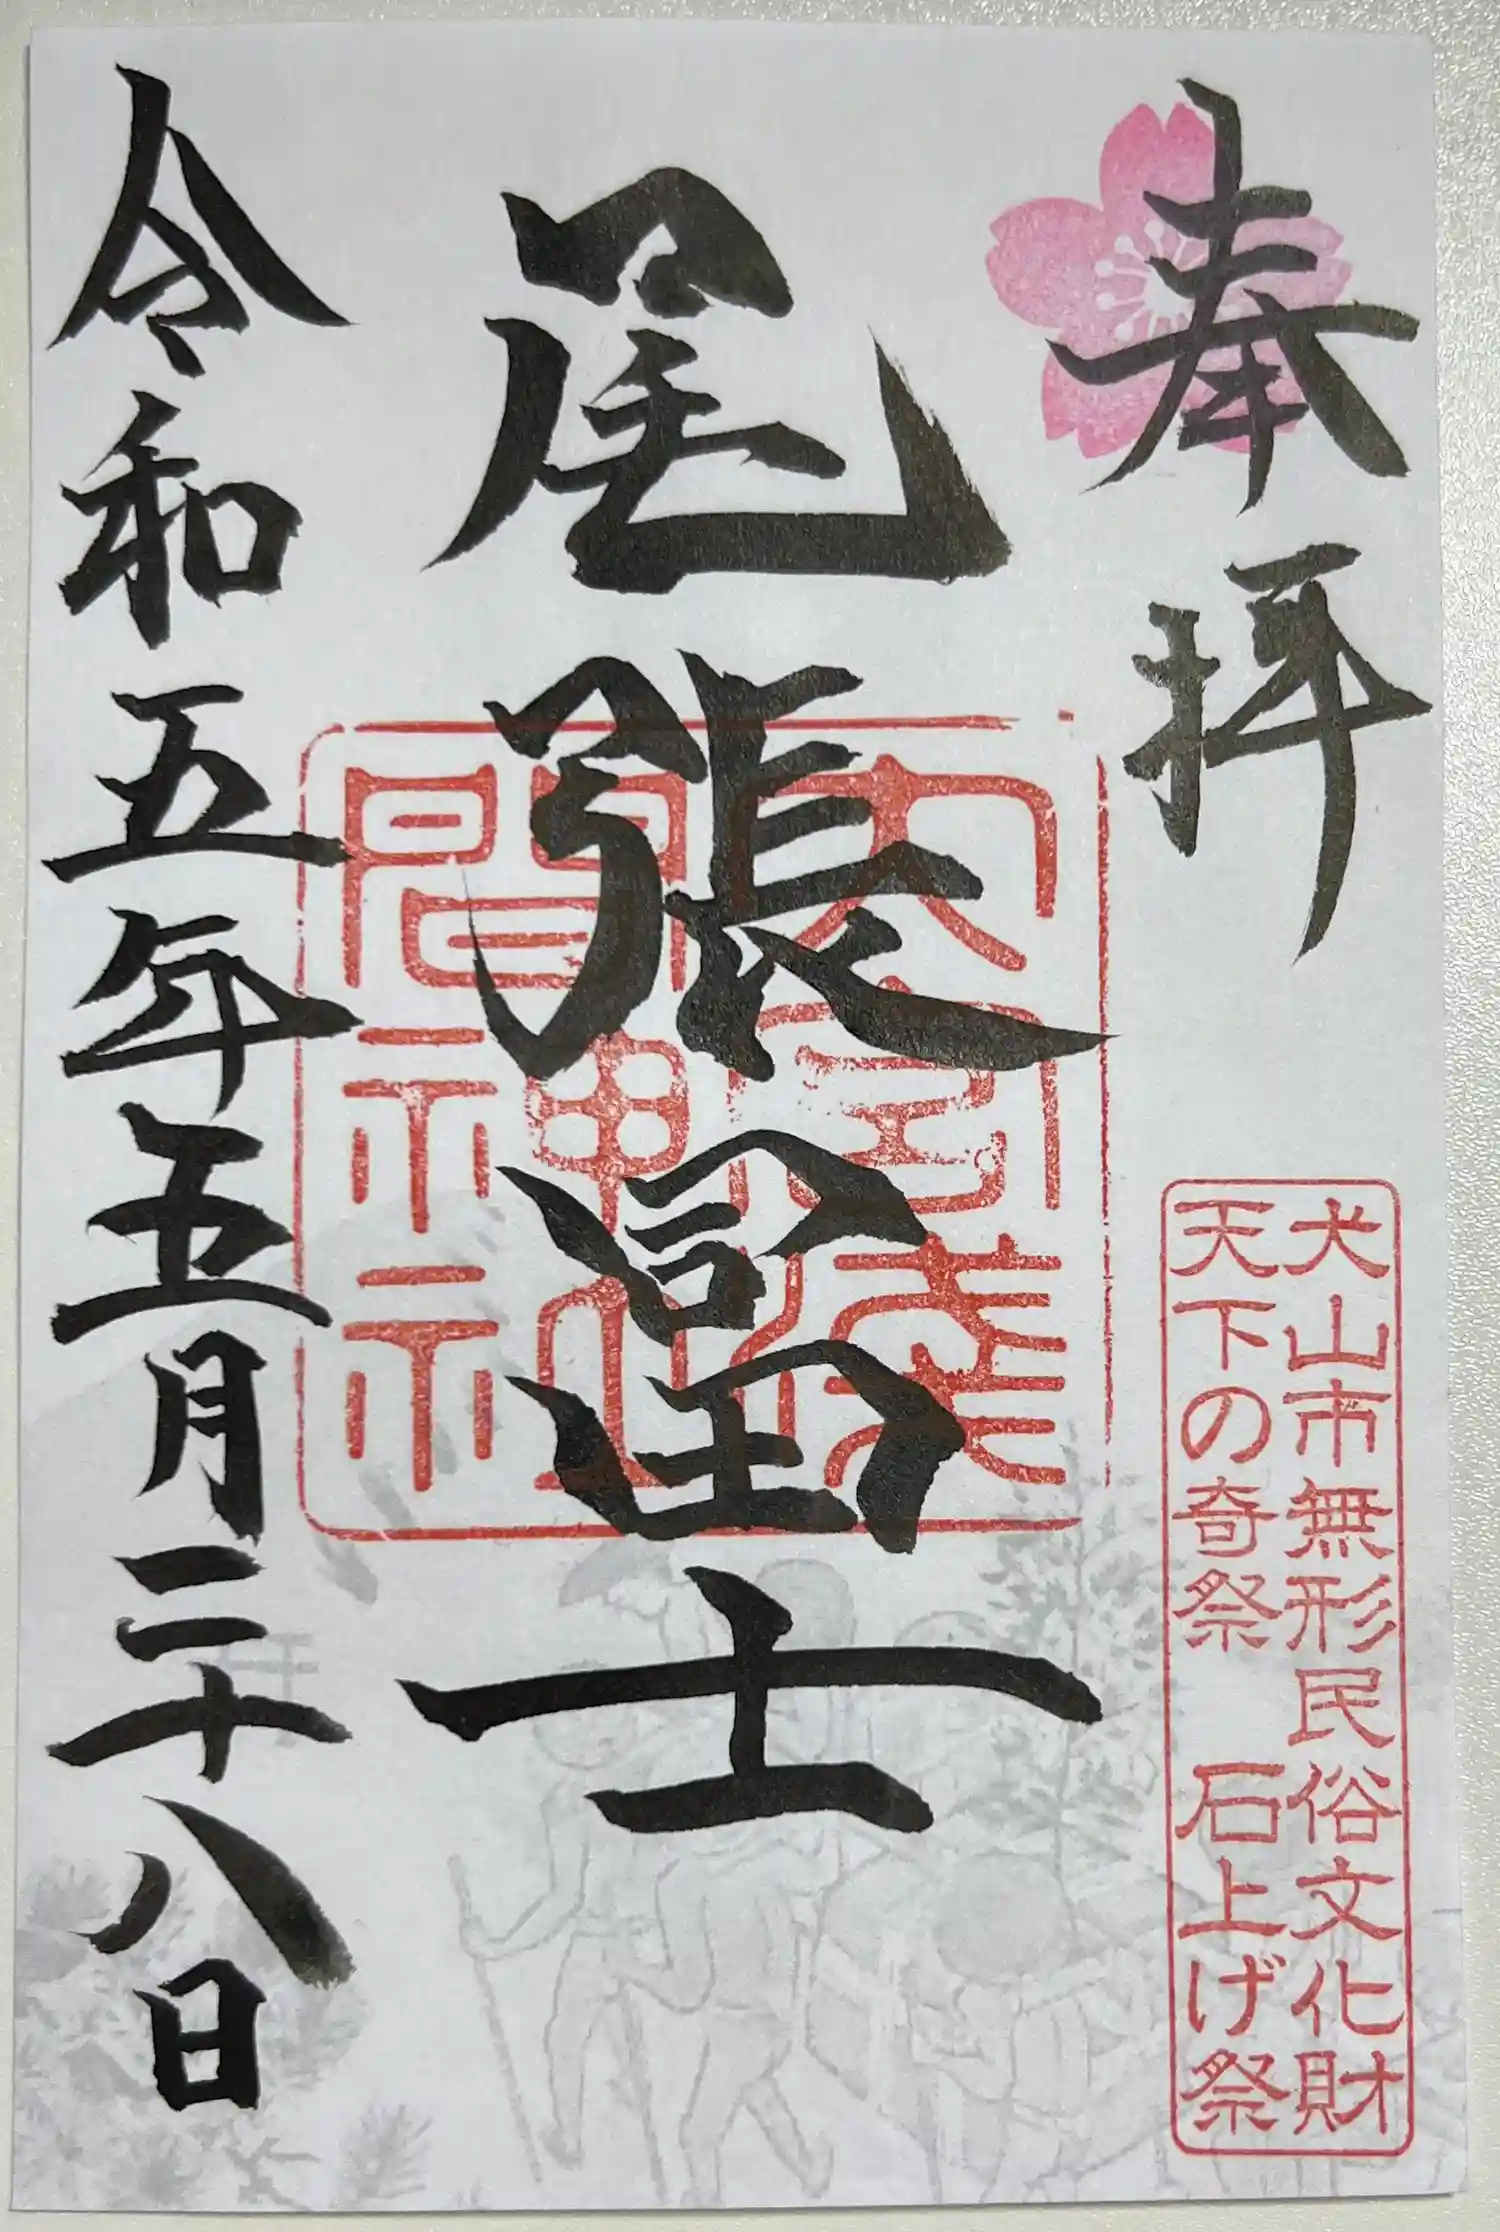 奉拝
犬山市無形民俗文化財
天下の奇祭 石上げ祭
尾張冨士
大宮浅間神社
令和五年五月二十八日